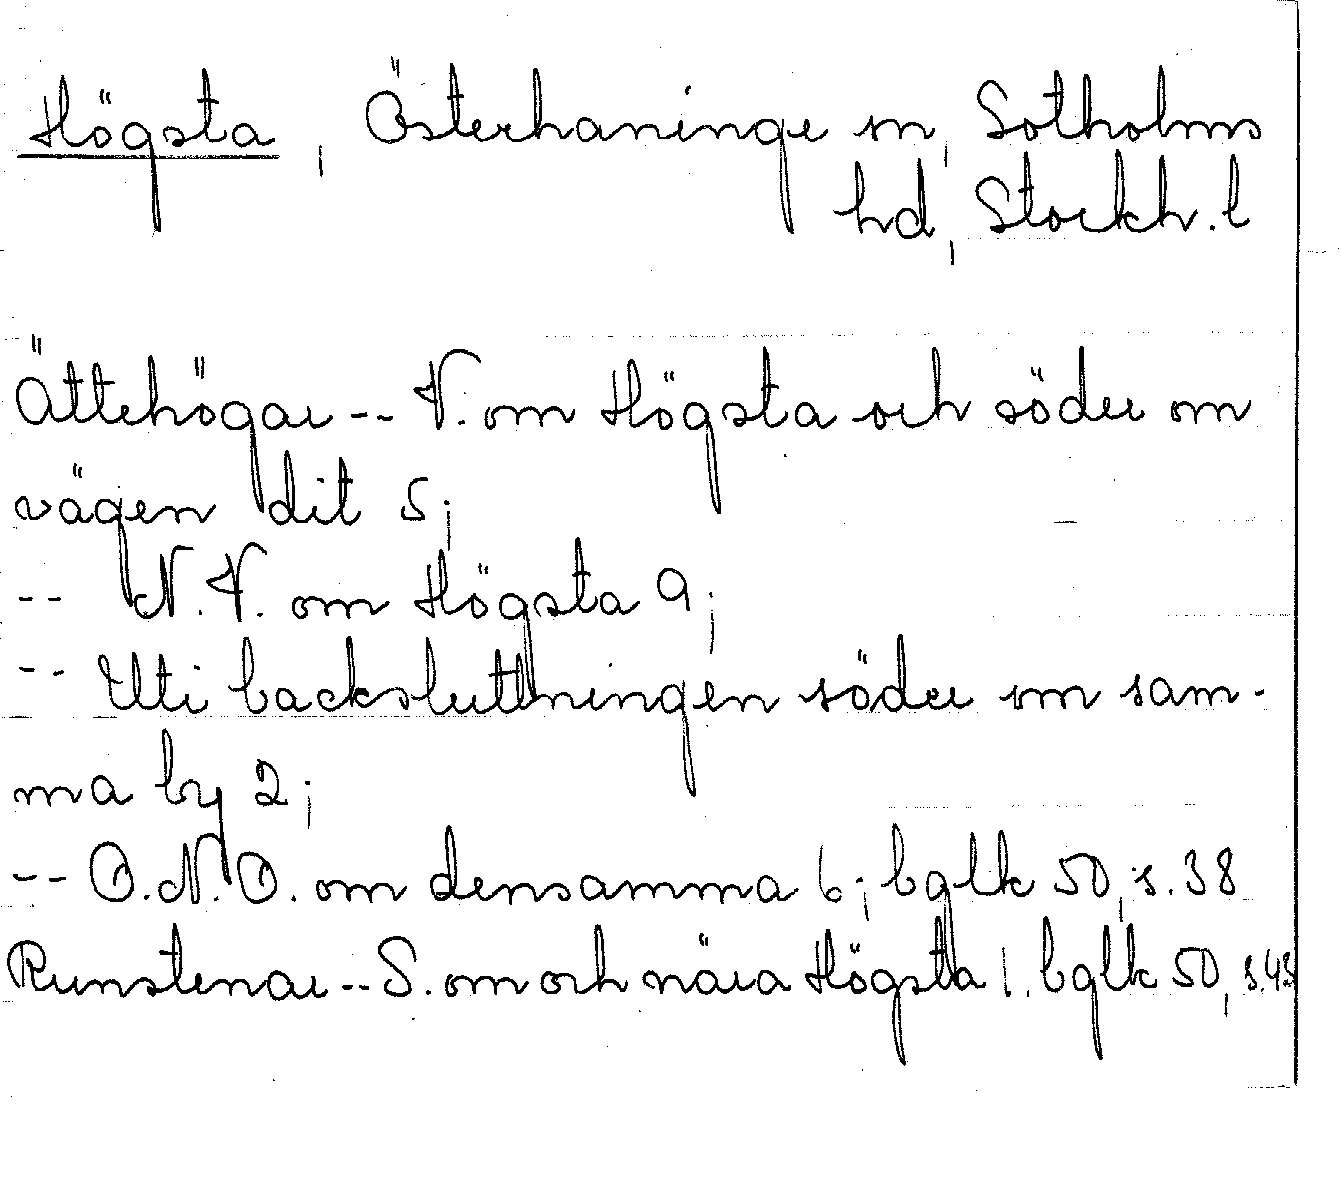 Högsta, Österhaninge sn, Sotholms
hd, Stockh. l
Ättehögar -- V. om Högsta och söder om
vägen dit 5;
-- N. V. om Högsta 9;
-- Uti backsluttningen söder om sam-
ma by 2;
-- O. N. O. om densamma 6; bglk 50, s. 38
Runstenar -- S. om och nära Högsta 1. bglk 50, s. 43